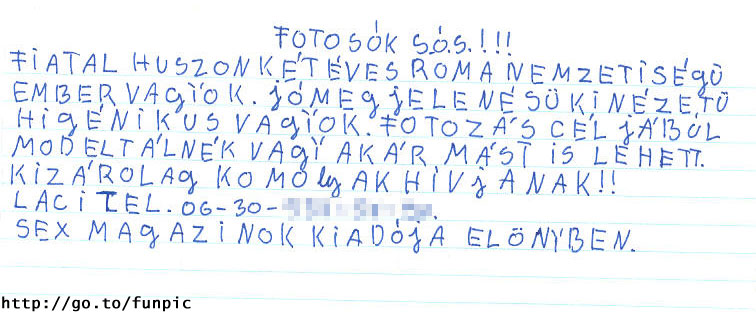 FOTOSÓK S.Ó.S.!!!
FIATAL HUSZONKÉTÉVES ROMA NEMZETISÉGŰ
EMBER VAGÏOK. JÓMEGJELENÉSŰ KINÉZETŰ
HIGÉNIKUS VAGÏOK. FOTOZÁS CÉLJÁBÓL
MODELTÁLNÉK VAGÏ AKÁR MÁST IS LEHETT.
KIZÁROLAG KOMOlyAK HIVJANAK!!
LACI TEL. 06-30-
SEX MAGAZINOK KIADÓJA ELÖNYBEN.
http://go.to/funpic